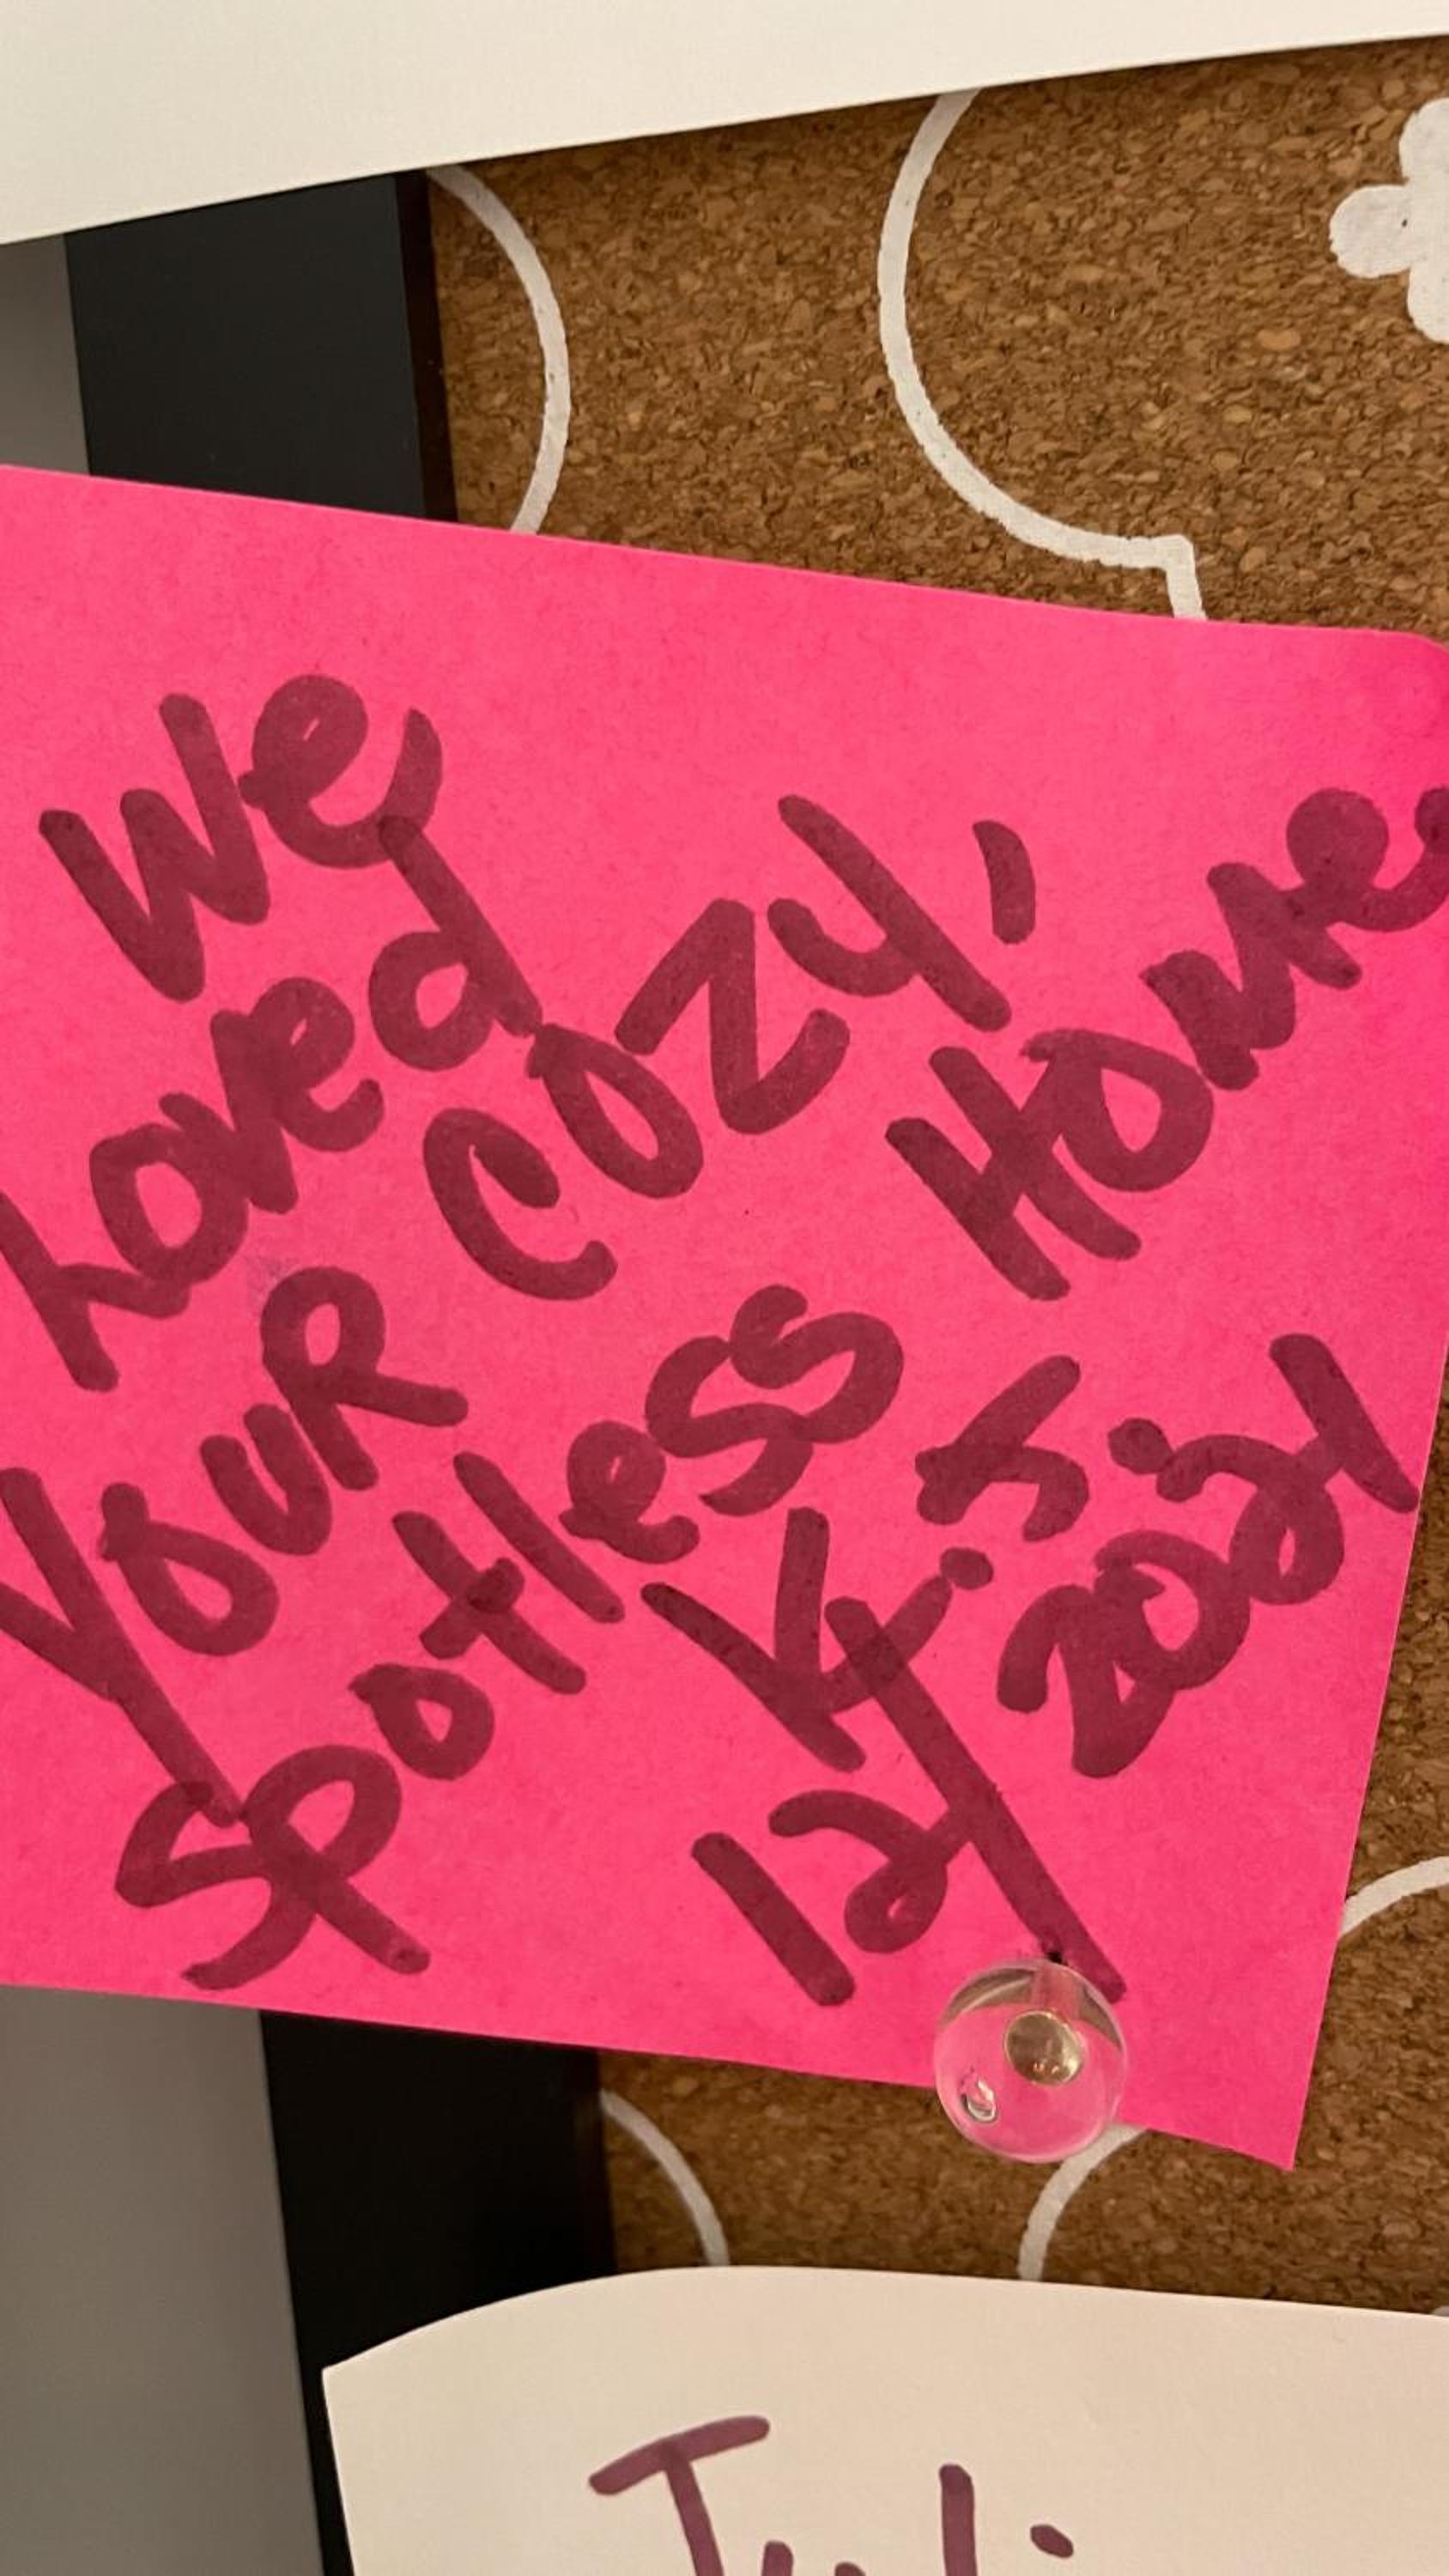 We
Loved
Your Cozy,
Spotless Home.
K.S.
12/2021